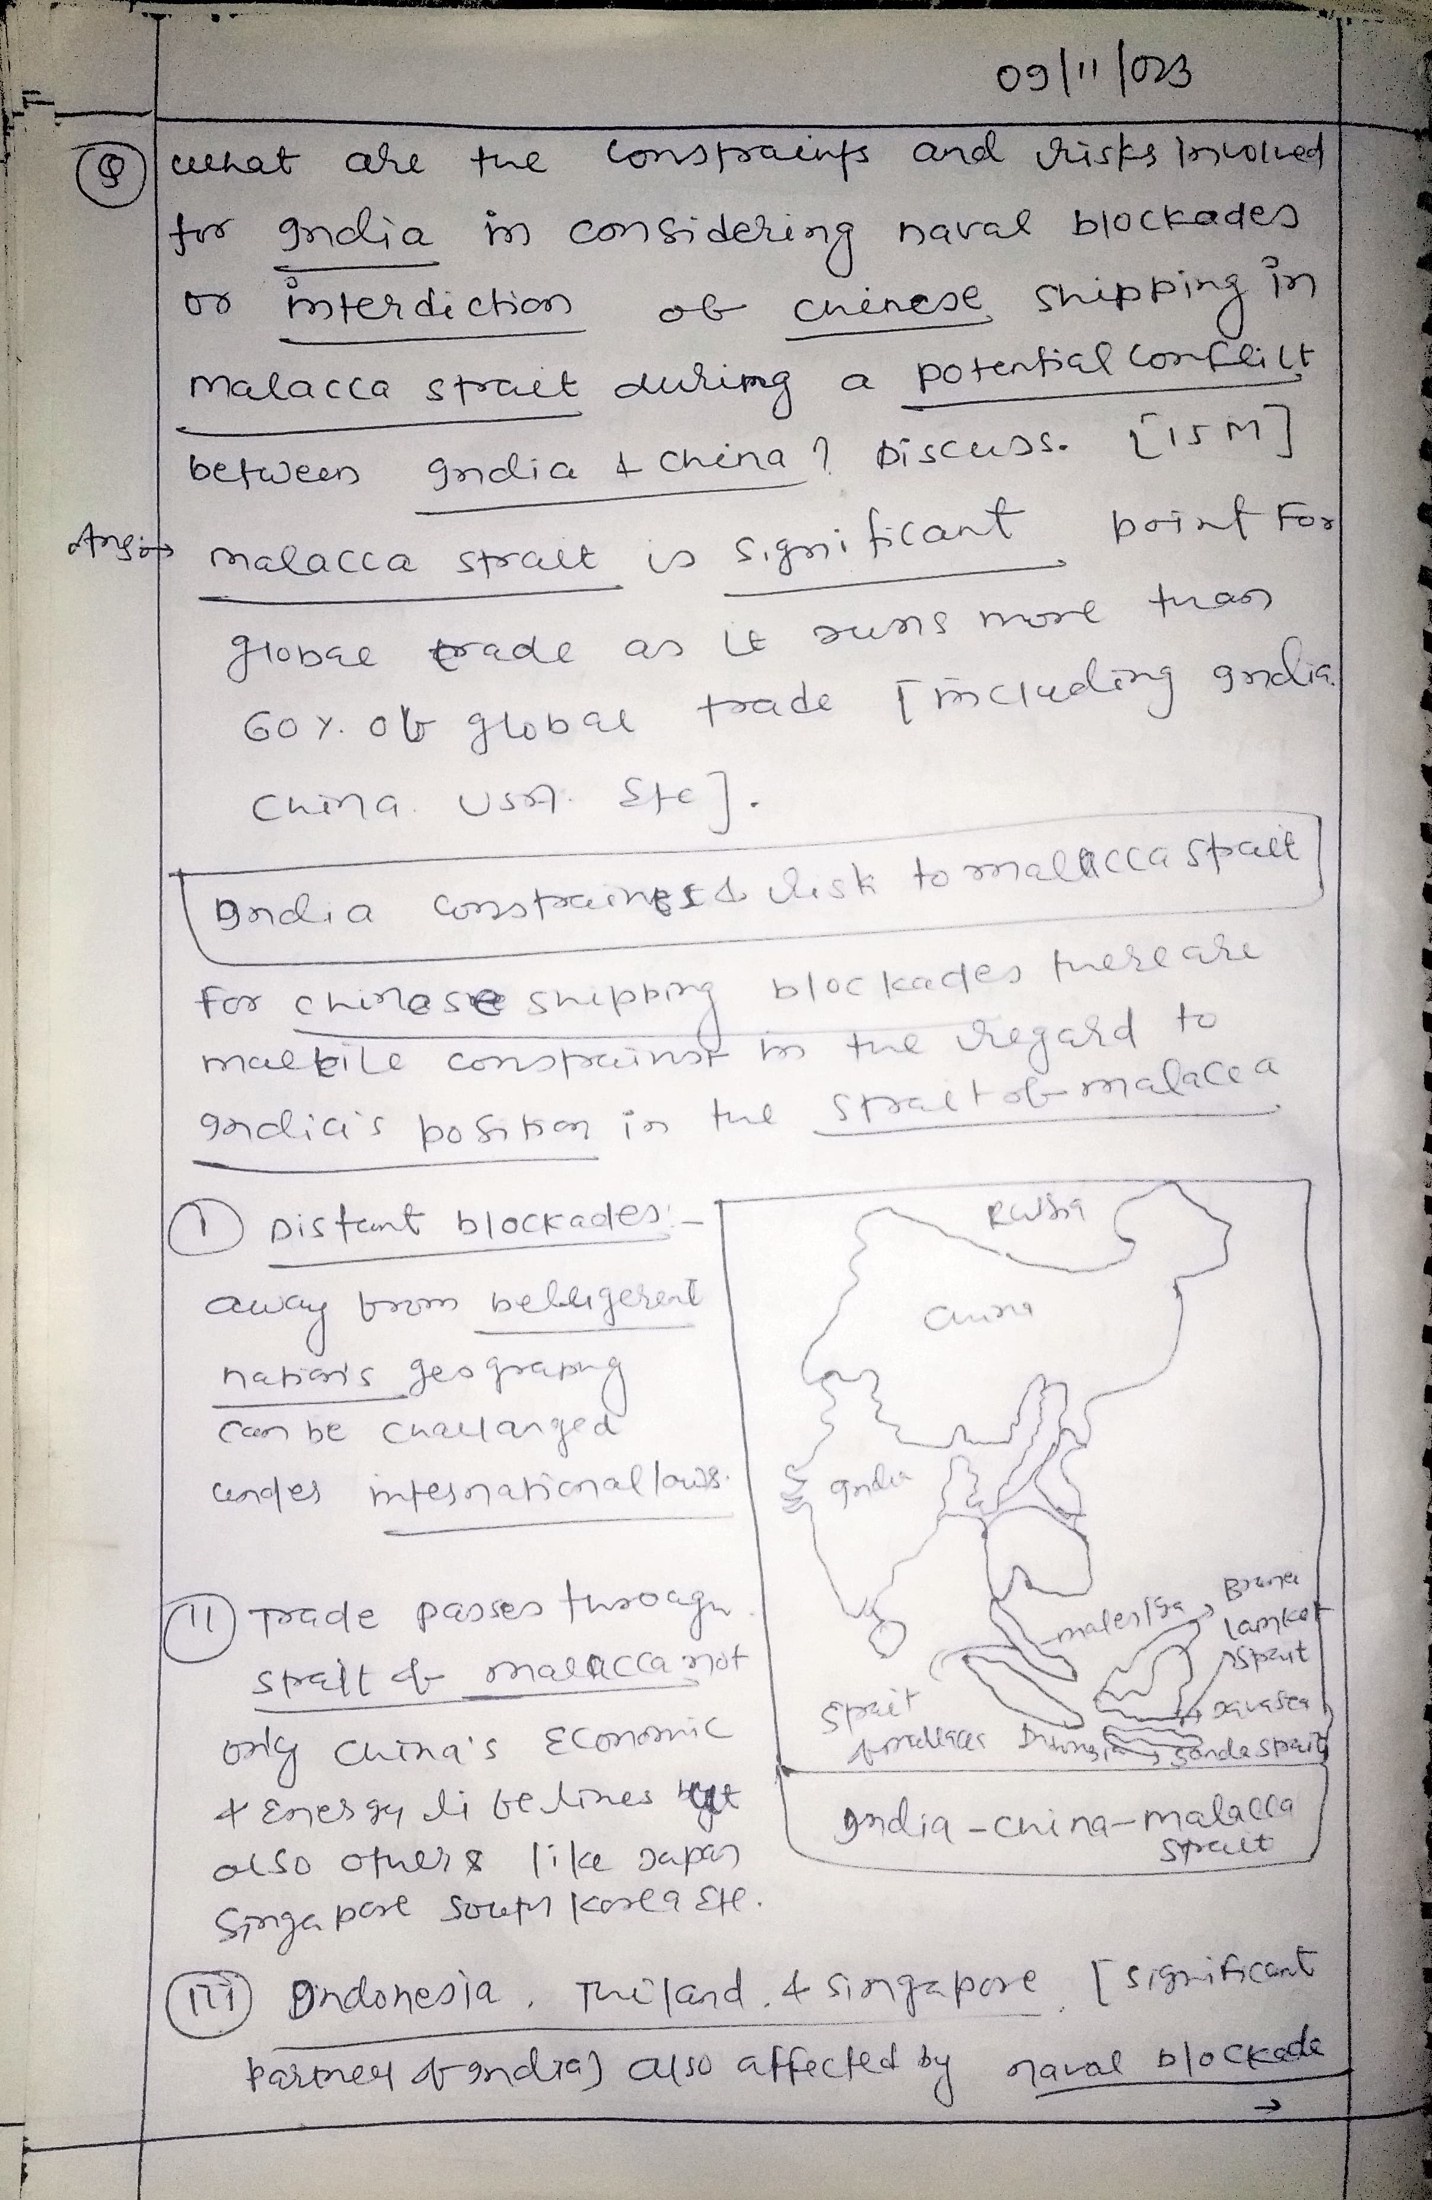 09/11/023
Q what are the constraints and risks involved
for India in considering naval blockades
or interdiction of chinese shipping in
malacca strait during a potential conflict
between India & China? Discuss. [15M]
Ans:→ malacca strait is significant point For
global trade as it runs more than
60%. of global trade [including India.
China. USA. Etc].
India constraints & risk to malacca strait
for chinese shipping blockades there are
multile constrainst in the regard to
India's position in the strait of malacca
I Distant blockades:-
away from belligerent
nation's geography
can be challanged
under international laws.
II Trade passes through
strait of malacca not
only China's Economic
& Energy life lines but
also others like Japan
Singapore South Korea Etc.
Russia
China
India
malesiya
Brunei
lambok
strait
Java sea
Sunda strait
Indonesia
Strait
of mallacca
India-China-malacca
strait
III Indonesia, Thiland, & Singapore [significant
partner of India] also affected by naval blockade
→